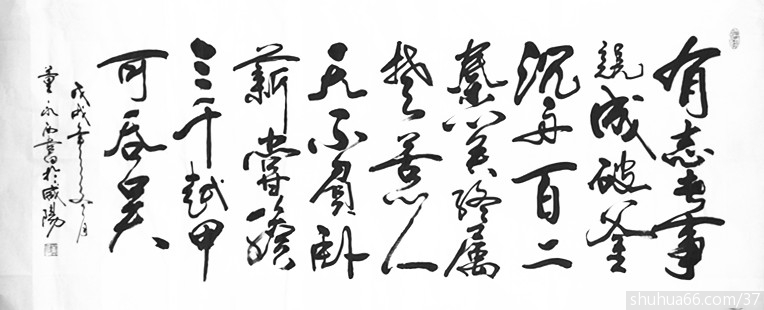 有志者事
竟成破釜
沉舟百二
秦关終属
楚苦心人
天不負卧
薪嘗膽
三千越甲
可吞吴
戊戌年冬月
董永西書於咸陽
shuhua66.com/37